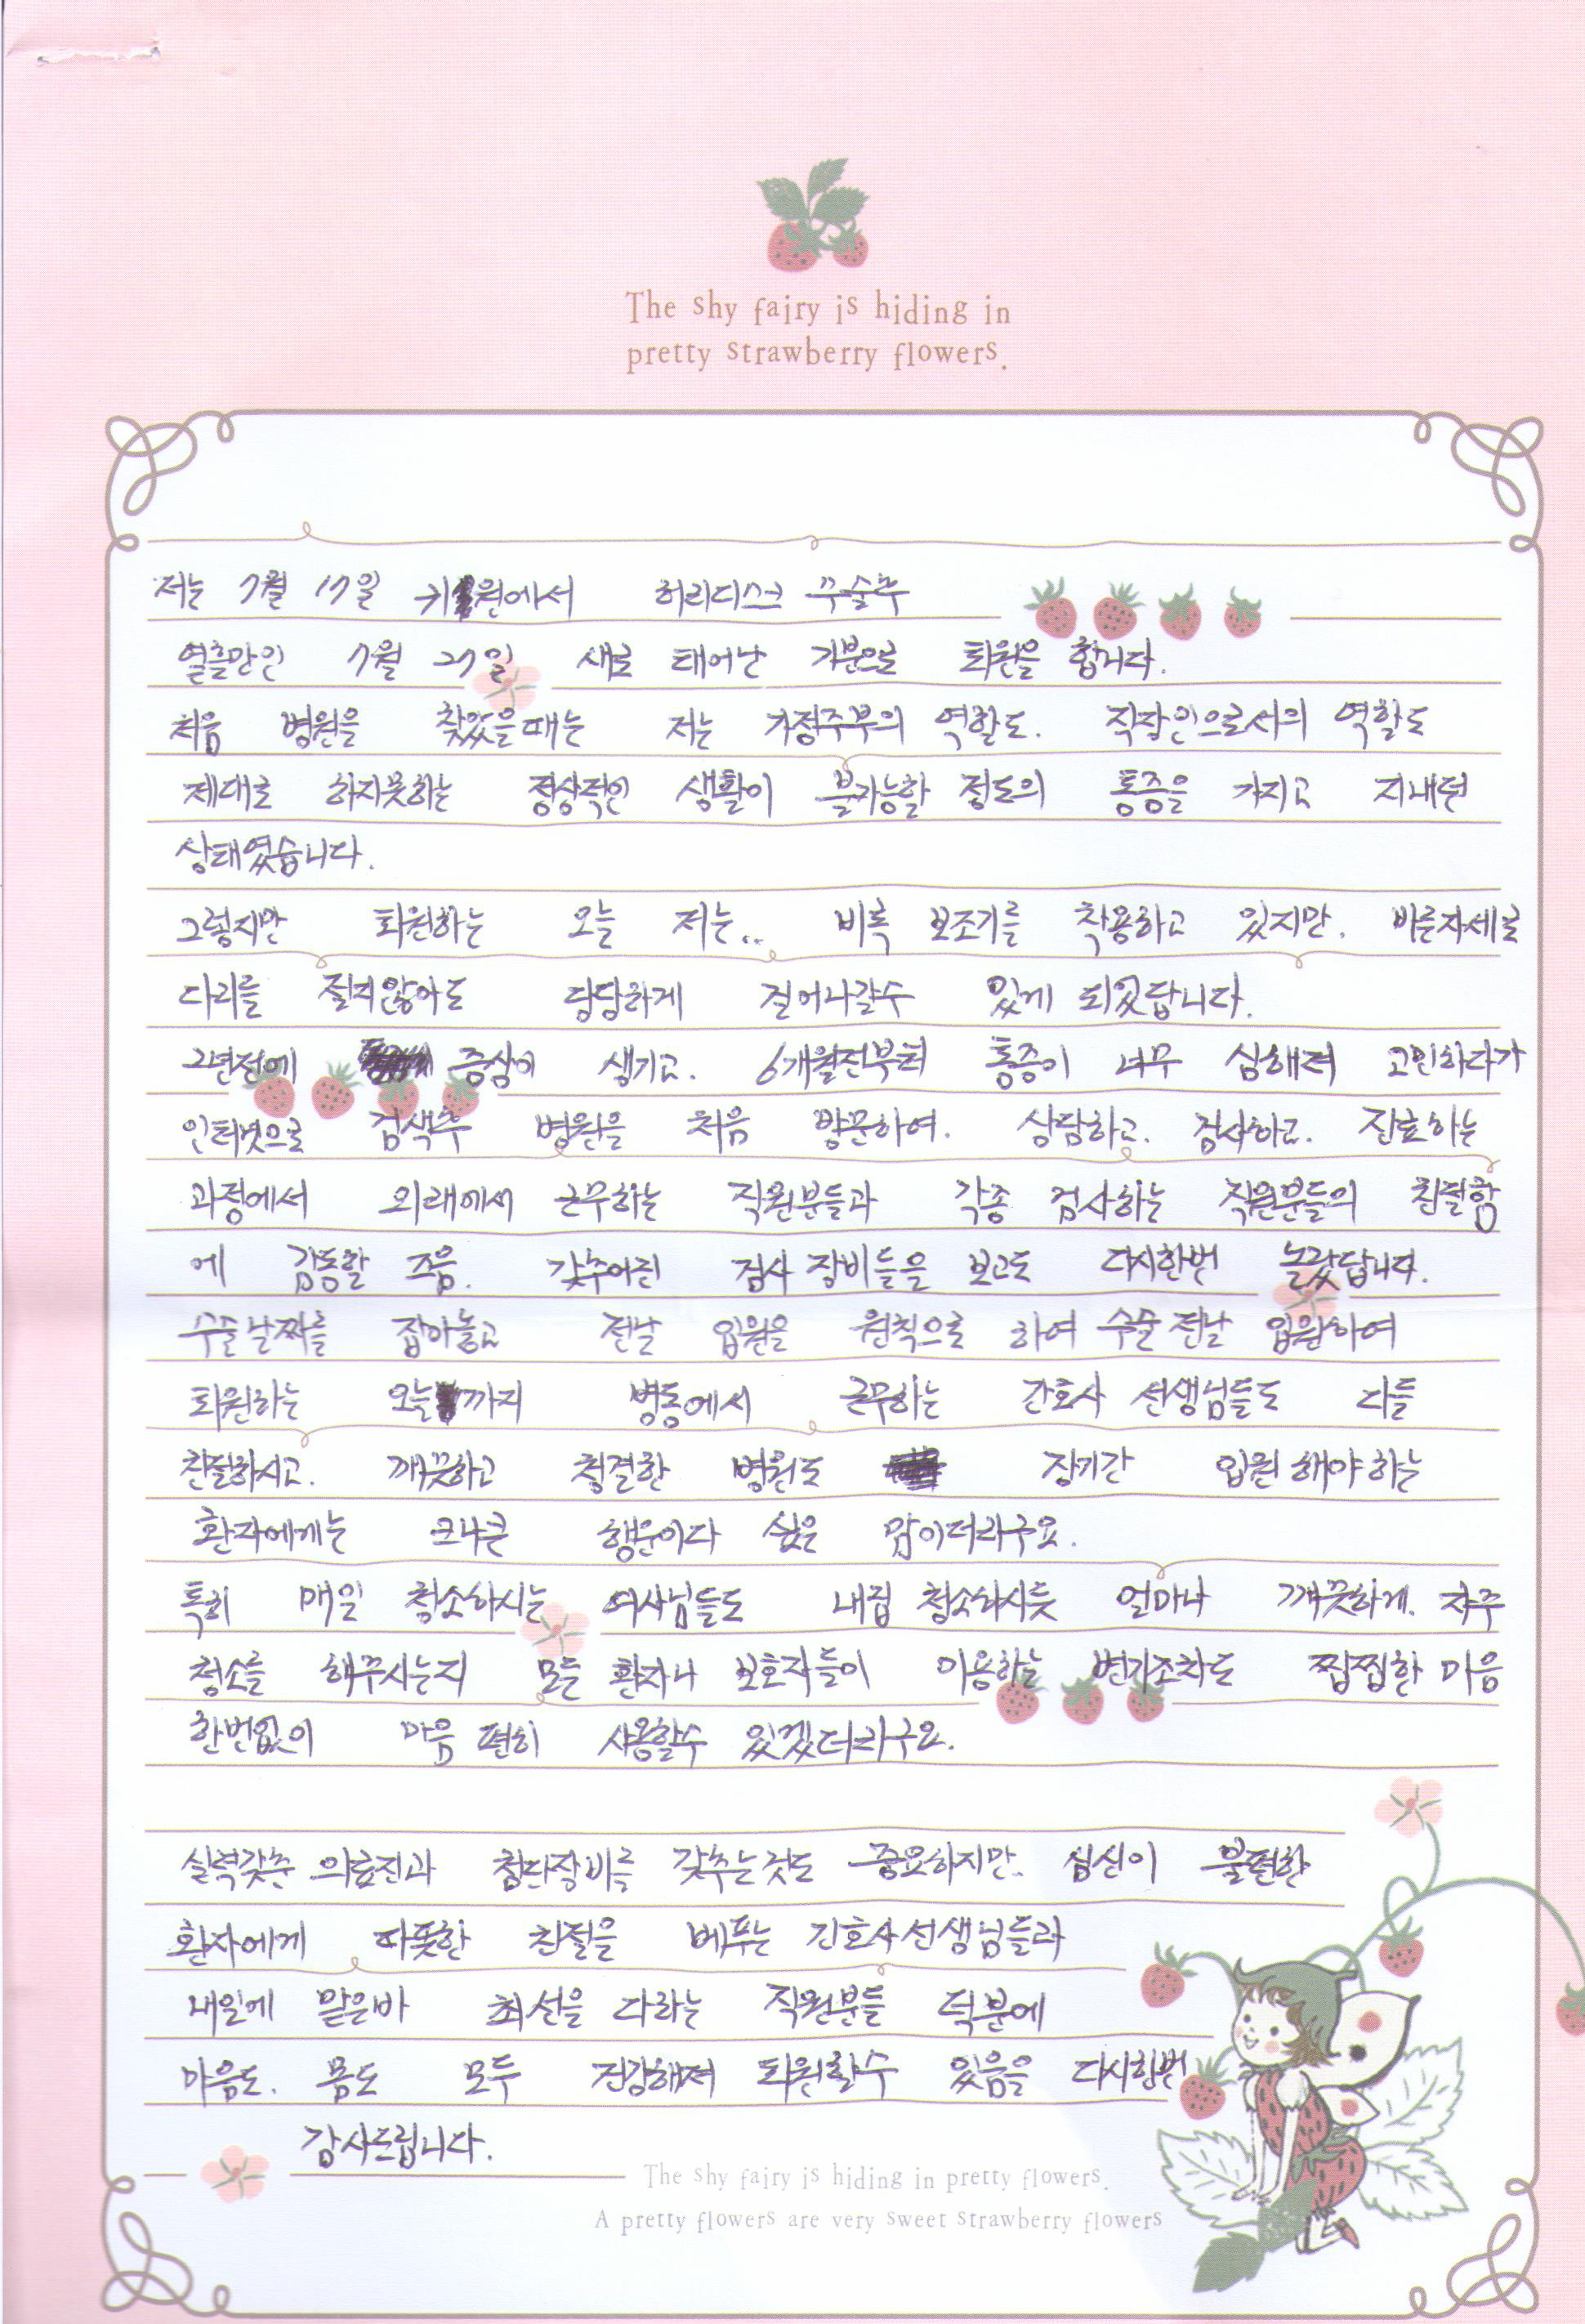 The shy fairy is hiding in
pretty strawberry flowers.
저는 7월 17일 귀병원에서 허리디스크 수술후
열흘만인 7월 27일 새로 태어난 기분으로 퇴원을 합니다.
처음 병원을 찾았을때는 저는 가정주부의 역할도. 직장인으로서의 역할도
제대로 하지못하는 정상적인 생활이 불가능할 정도의 통증을 가지고 지내던
상태였습니다.
그렇지만 퇴원하는 오늘 저는.. 비록 보조기를 착용하고 있지만. 바른자세로
다리를 절지않아도 당당하게 걸어나갈수 있게 되었답니다.
2년전에 증상이 생기고. 6개월전부터 통증이 너무 심해져 고민하다가
인터넷으로 검색후 병원을 처음 방문하여. 상담하고. 검사하고. 진료하는
과정에서 외래에서 근무하는 직원분들과 각종 검사하는 직원분들의 친절함
에 감동할 즈음. 갖추어진 검사 장비들을 보고도 다시한번 놀랐답니다.
수술날짜를 잡아놓고 전날 입원을 원칙으로 하여 수술 전날 입원하여
퇴원하는 오늘까지 병동에서 근무하는 간호사 선생님들도 다들
친절하시고. 깨끗하고 청결한 병원도 장기간 입원 해야 하는
환자에게는 크나큰 행운이다 싶은 맘이더라구요.
특히 매일 청소하시는 여사님들도 내집 청소하시듯 얼마나 깨끗하게. 자주
청소를 해주시는지 모든 환자나 보호자들이 이용하는 변기조차도 찝찝한 마음
한번없이 마음 편히 사용할수 있겠더라구요.
실력갖춘 의료진과 첨단장비를 갖추는것도 중요하지만. 심신이 불편한
환자에게 따뜻한 친절을 베푸는 간호사선생님들과
내일에 맡은바 최선을 다하는 직원분들 덕분에
마음도. 몸도 모두 건강해져 퇴원할수 있음을 다시한번
감사드립니다.
The shy fairy is hiding in pretty flowers.
A pretty flowers are very sweet strawberry flowers